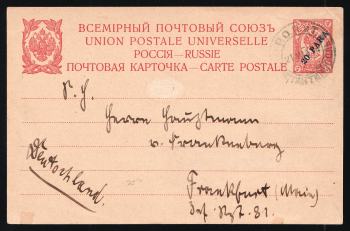 ВСЕМІРНЫЙ ПОЧТОВЫЙ СОЮЗЪ
UNION POSTALE UNIVERSELLE
РОССІЯ—RUSSIE
ПОЧТОВАЯ КАРТОЧКА—CARTE POSTALE
20 PARA
S. H.
Herrn Hauptmann
v. Frankenberg
Deutschland.
Frankfurt (Main)
81.